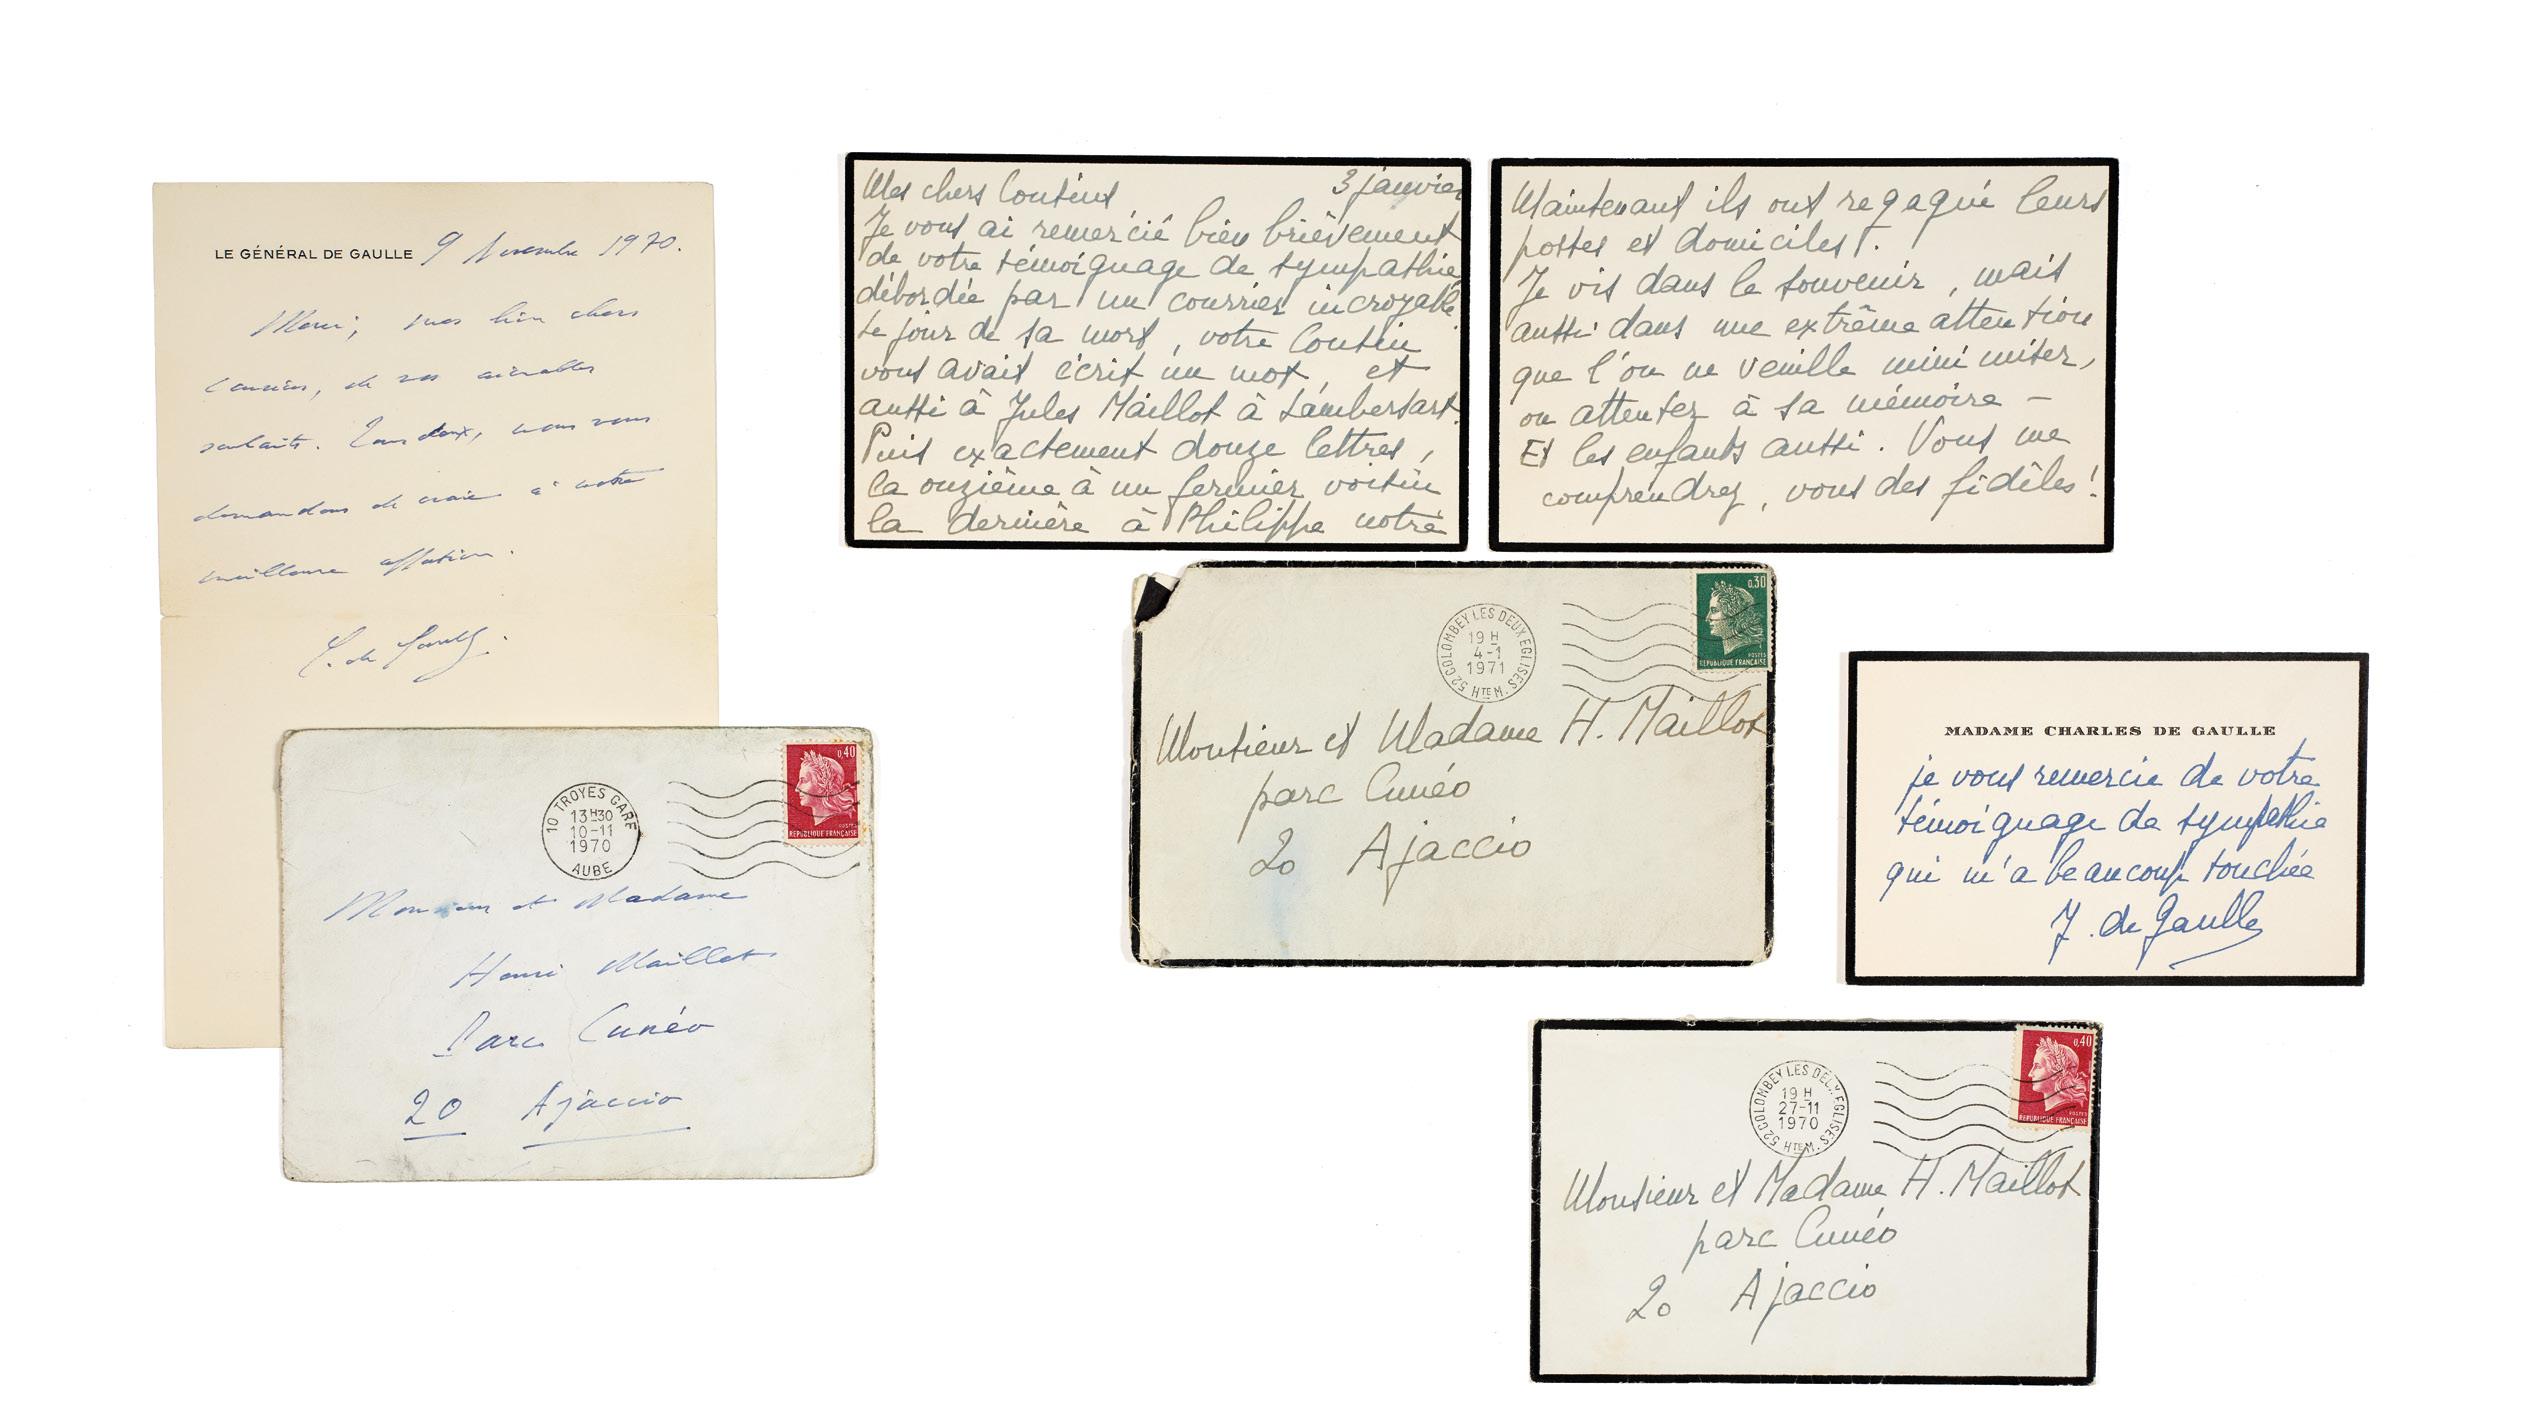 LE GÉNÉRAL DE GAULLE 9 Novembre 1970.
Merci, mes bien chers
Cousins, de vos aimables
souhaits. Tous deux, nous vous
demandons de croire à notre
meilleure affection.
C. de Gaulle.
10 TROYES GARE
13H30
10-11
1970
AUBE
0,40
POSTES
REPUBLIQUE FRANÇAISE
Monsieur et Madame
Henri Maillot
Parc Cunéo
20 Ajaccio
Mes chers Cousins, 3 janvier
Je vous ai remercié bien brièvement
de votre témoignage de sympathie
débordée par un courrier incroyable.
Le jour de sa mort, votre Cousin
vous avait écrit un mot, et
aussi à Jules Maillot à Lambersart.
Puis exactement douze lettres,
la onzième à un fermier voisin
la dernière à Philippe notre
Maintenant ils ont regagné leurs
postes et domiciles.
Je vis dans le souvenir, mais
aussi dans une extrême attention
que l'on ne veuille minimiser,
ou attenter à sa mémoire -
Et les enfants aussi. Vous me
comprendrez, vous des fidèles!
52 COLOMBEY LES DEUX EGLISES
19 H
4-1
1971
HTE M.
0,30
POSTES
REPUBLIQUE FRANÇAISE
Monsieur et Madame H. Maillot
parc Cunéo
20 Ajaccio
MADAME CHARLES DE GAULLE
je vous remercie de votre
témoignage de sympathie
qui m'a beaucoup touchée
Y. de Gaulle
52 COLOMBEY LES DEUX EGLISES
19 H
27-11
1970
HTE M.
0,40
POSTES
REPUBLIQUE FRANÇAISE
Monsieur et Madame H. Maillot
parc Cunéo
20 Ajaccio